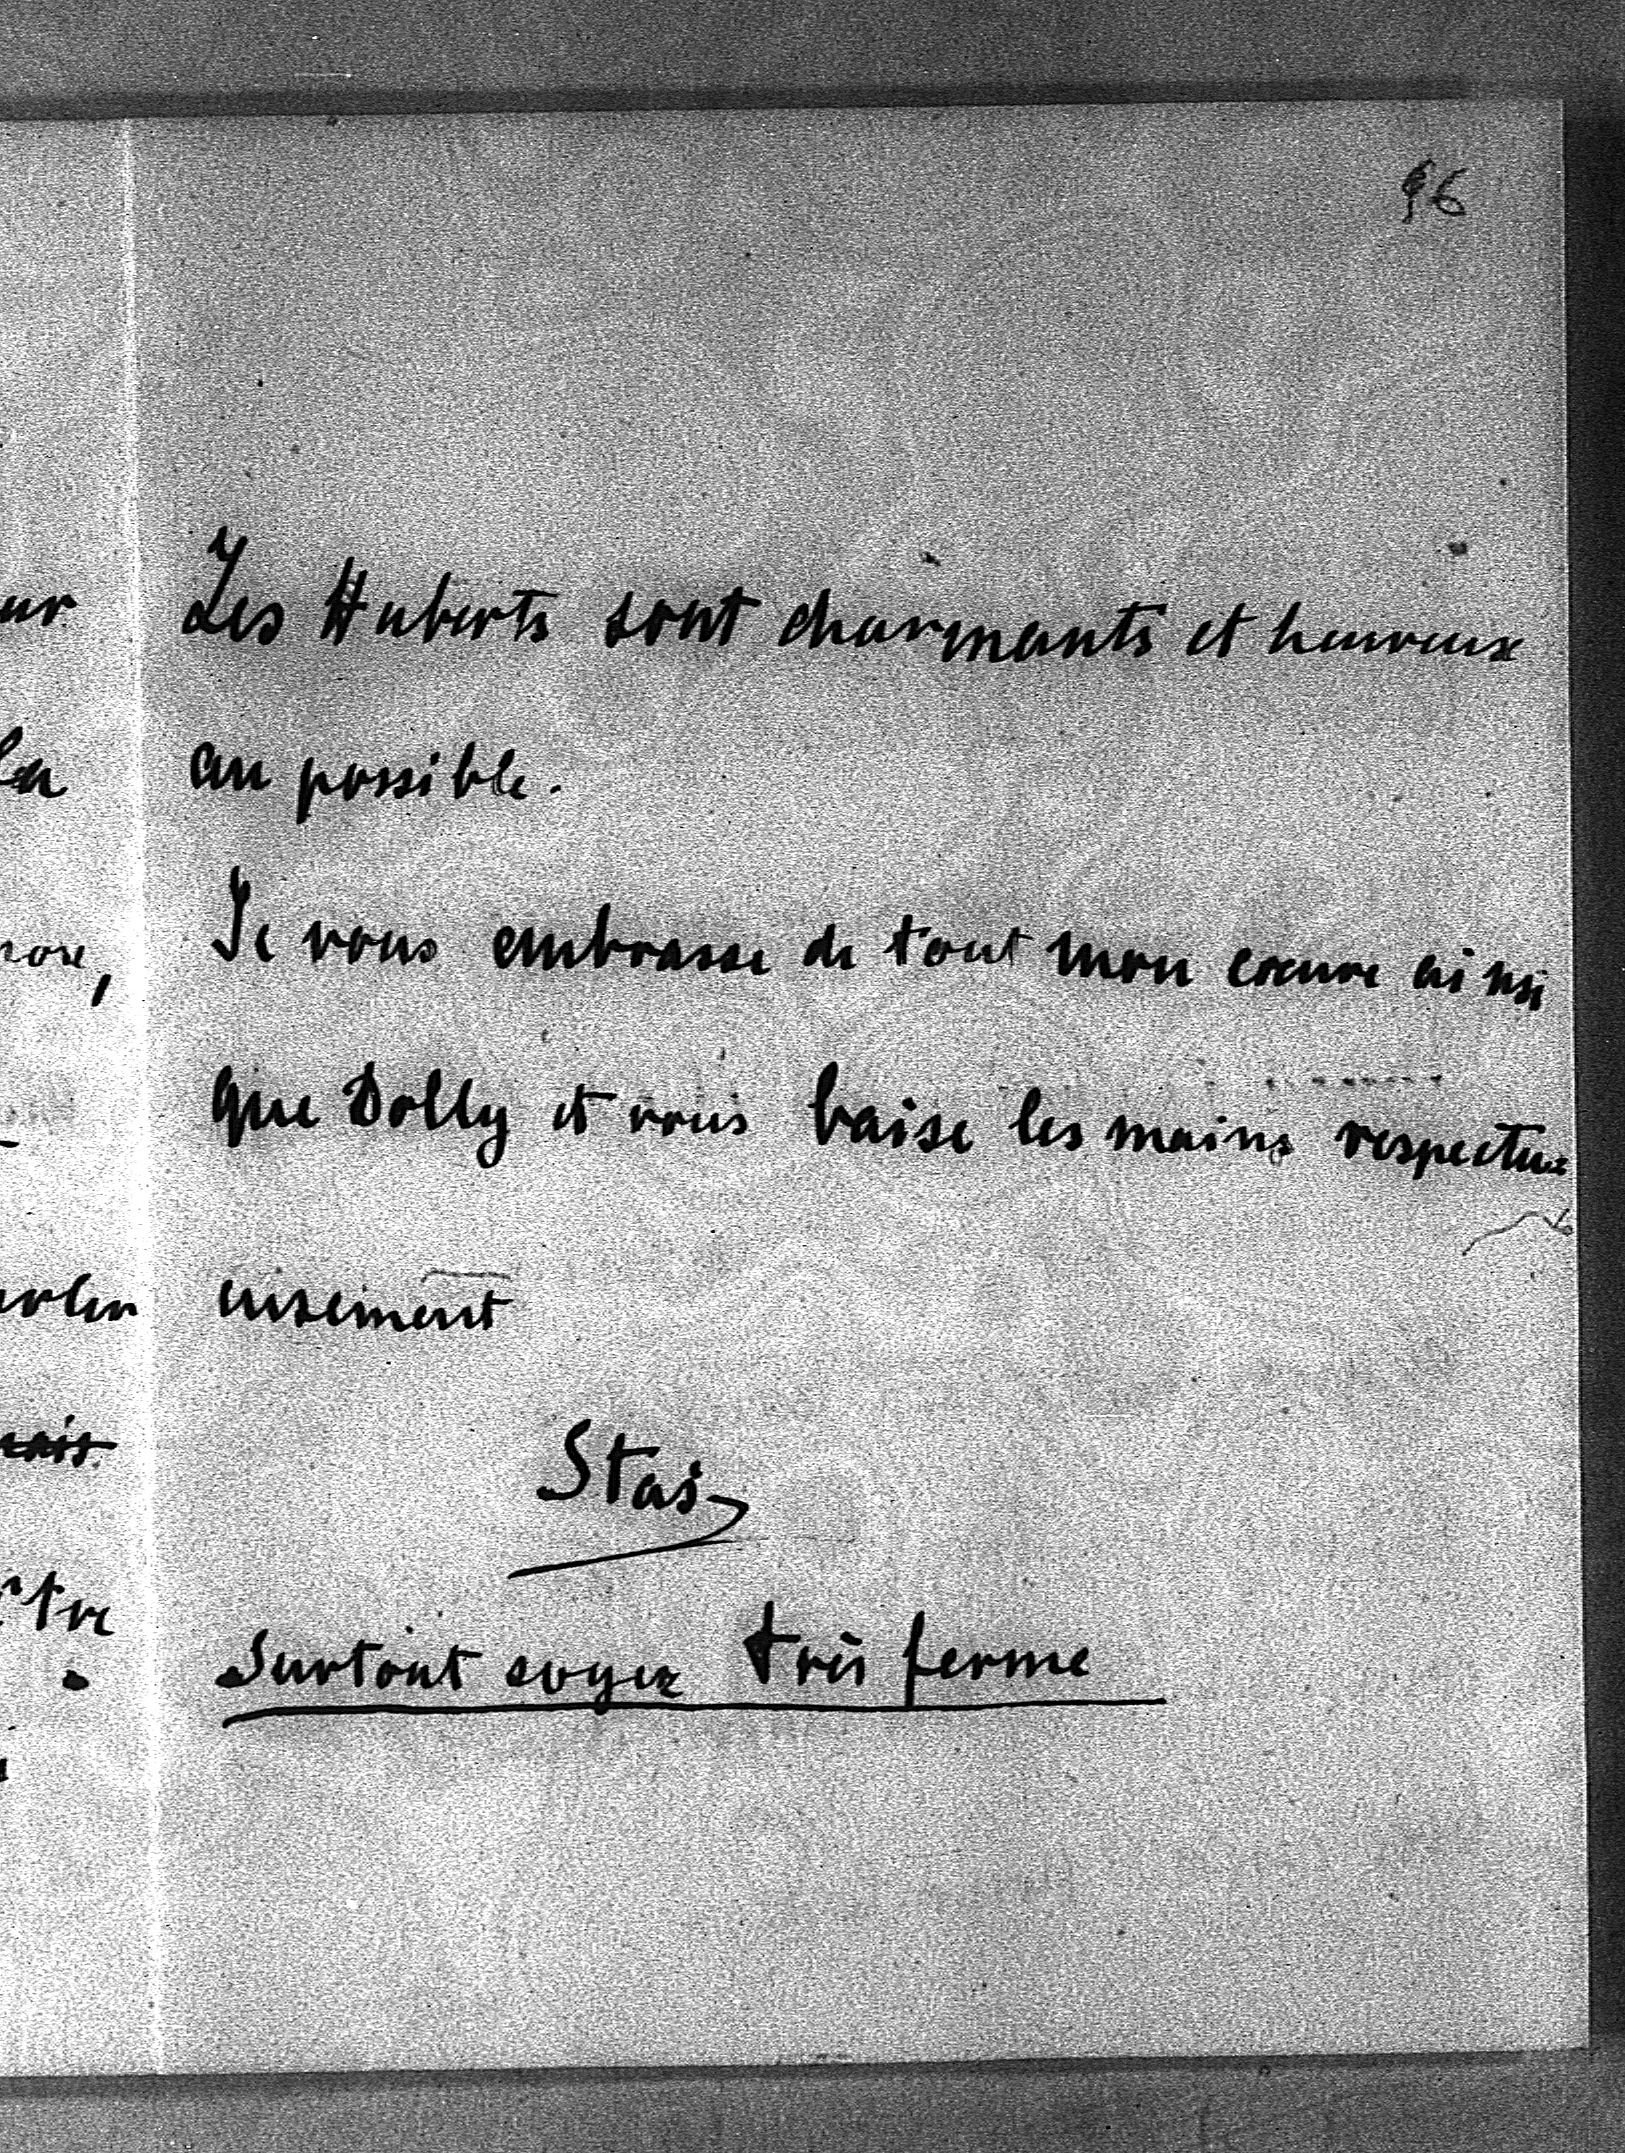 96
Les Huberts sont charmants et heureux
au possible.
Je vous embrasse de tout mon coeure ainsi
que Dolly et vous baise les mains respectu=
eusement
Stas
Surtout soyez très ferme
ur
la
,
tre